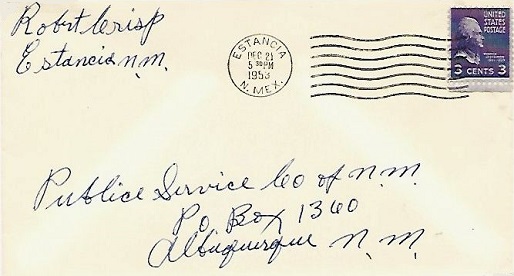 Robt Crisp
Estancia N.M.
ESTANCIA
DEC 21
5 30 PM
1953
N. MEX.
UNITED
STATES
POSTAGE
3 CENTS 3
Publice Service Co of N.M.
Po Box 1360
Albuquerque N.M.